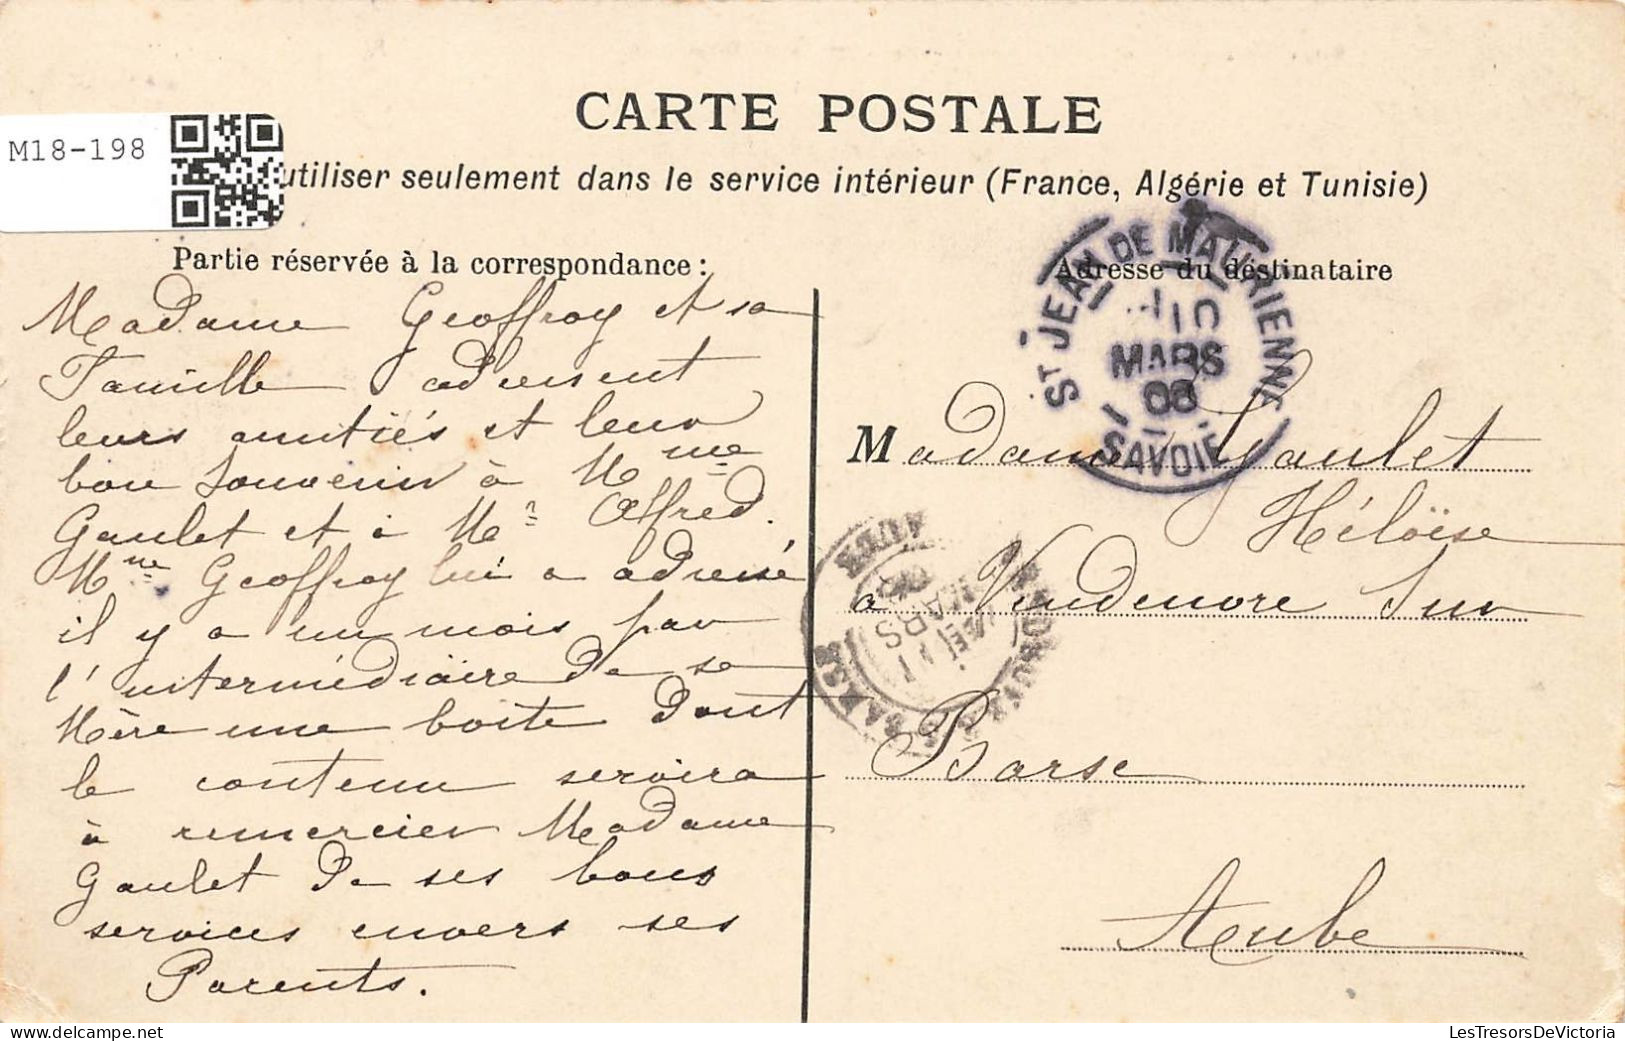 M18-198
CARTE POSTALE
utiliser seulement dans le service intérieur (France, Algérie et Tunisie)
Partie réservée à la correspondance :
Adresse du destinataire
Madame Geoffroy et sa
Famille adressent
leurs amitiés et leur
bon souvenir à Mme
Gaulet et à Mr Alfred.
Mme Geoffroy lui a adressé
il y a un mois par
l'intermédiaire de sa
Mère une boite dont
le contenu servira
à remercier Madame
Gaulet de ses bons
services envers ses
Parents.
ST JEAN DE MAURIENNE
10
MARS
08
SAVOIE
Madame Gaulet
Héloïse
a Vendeuvre Sur
Barse
Aube
MARS
LesTresorsDeVictoria